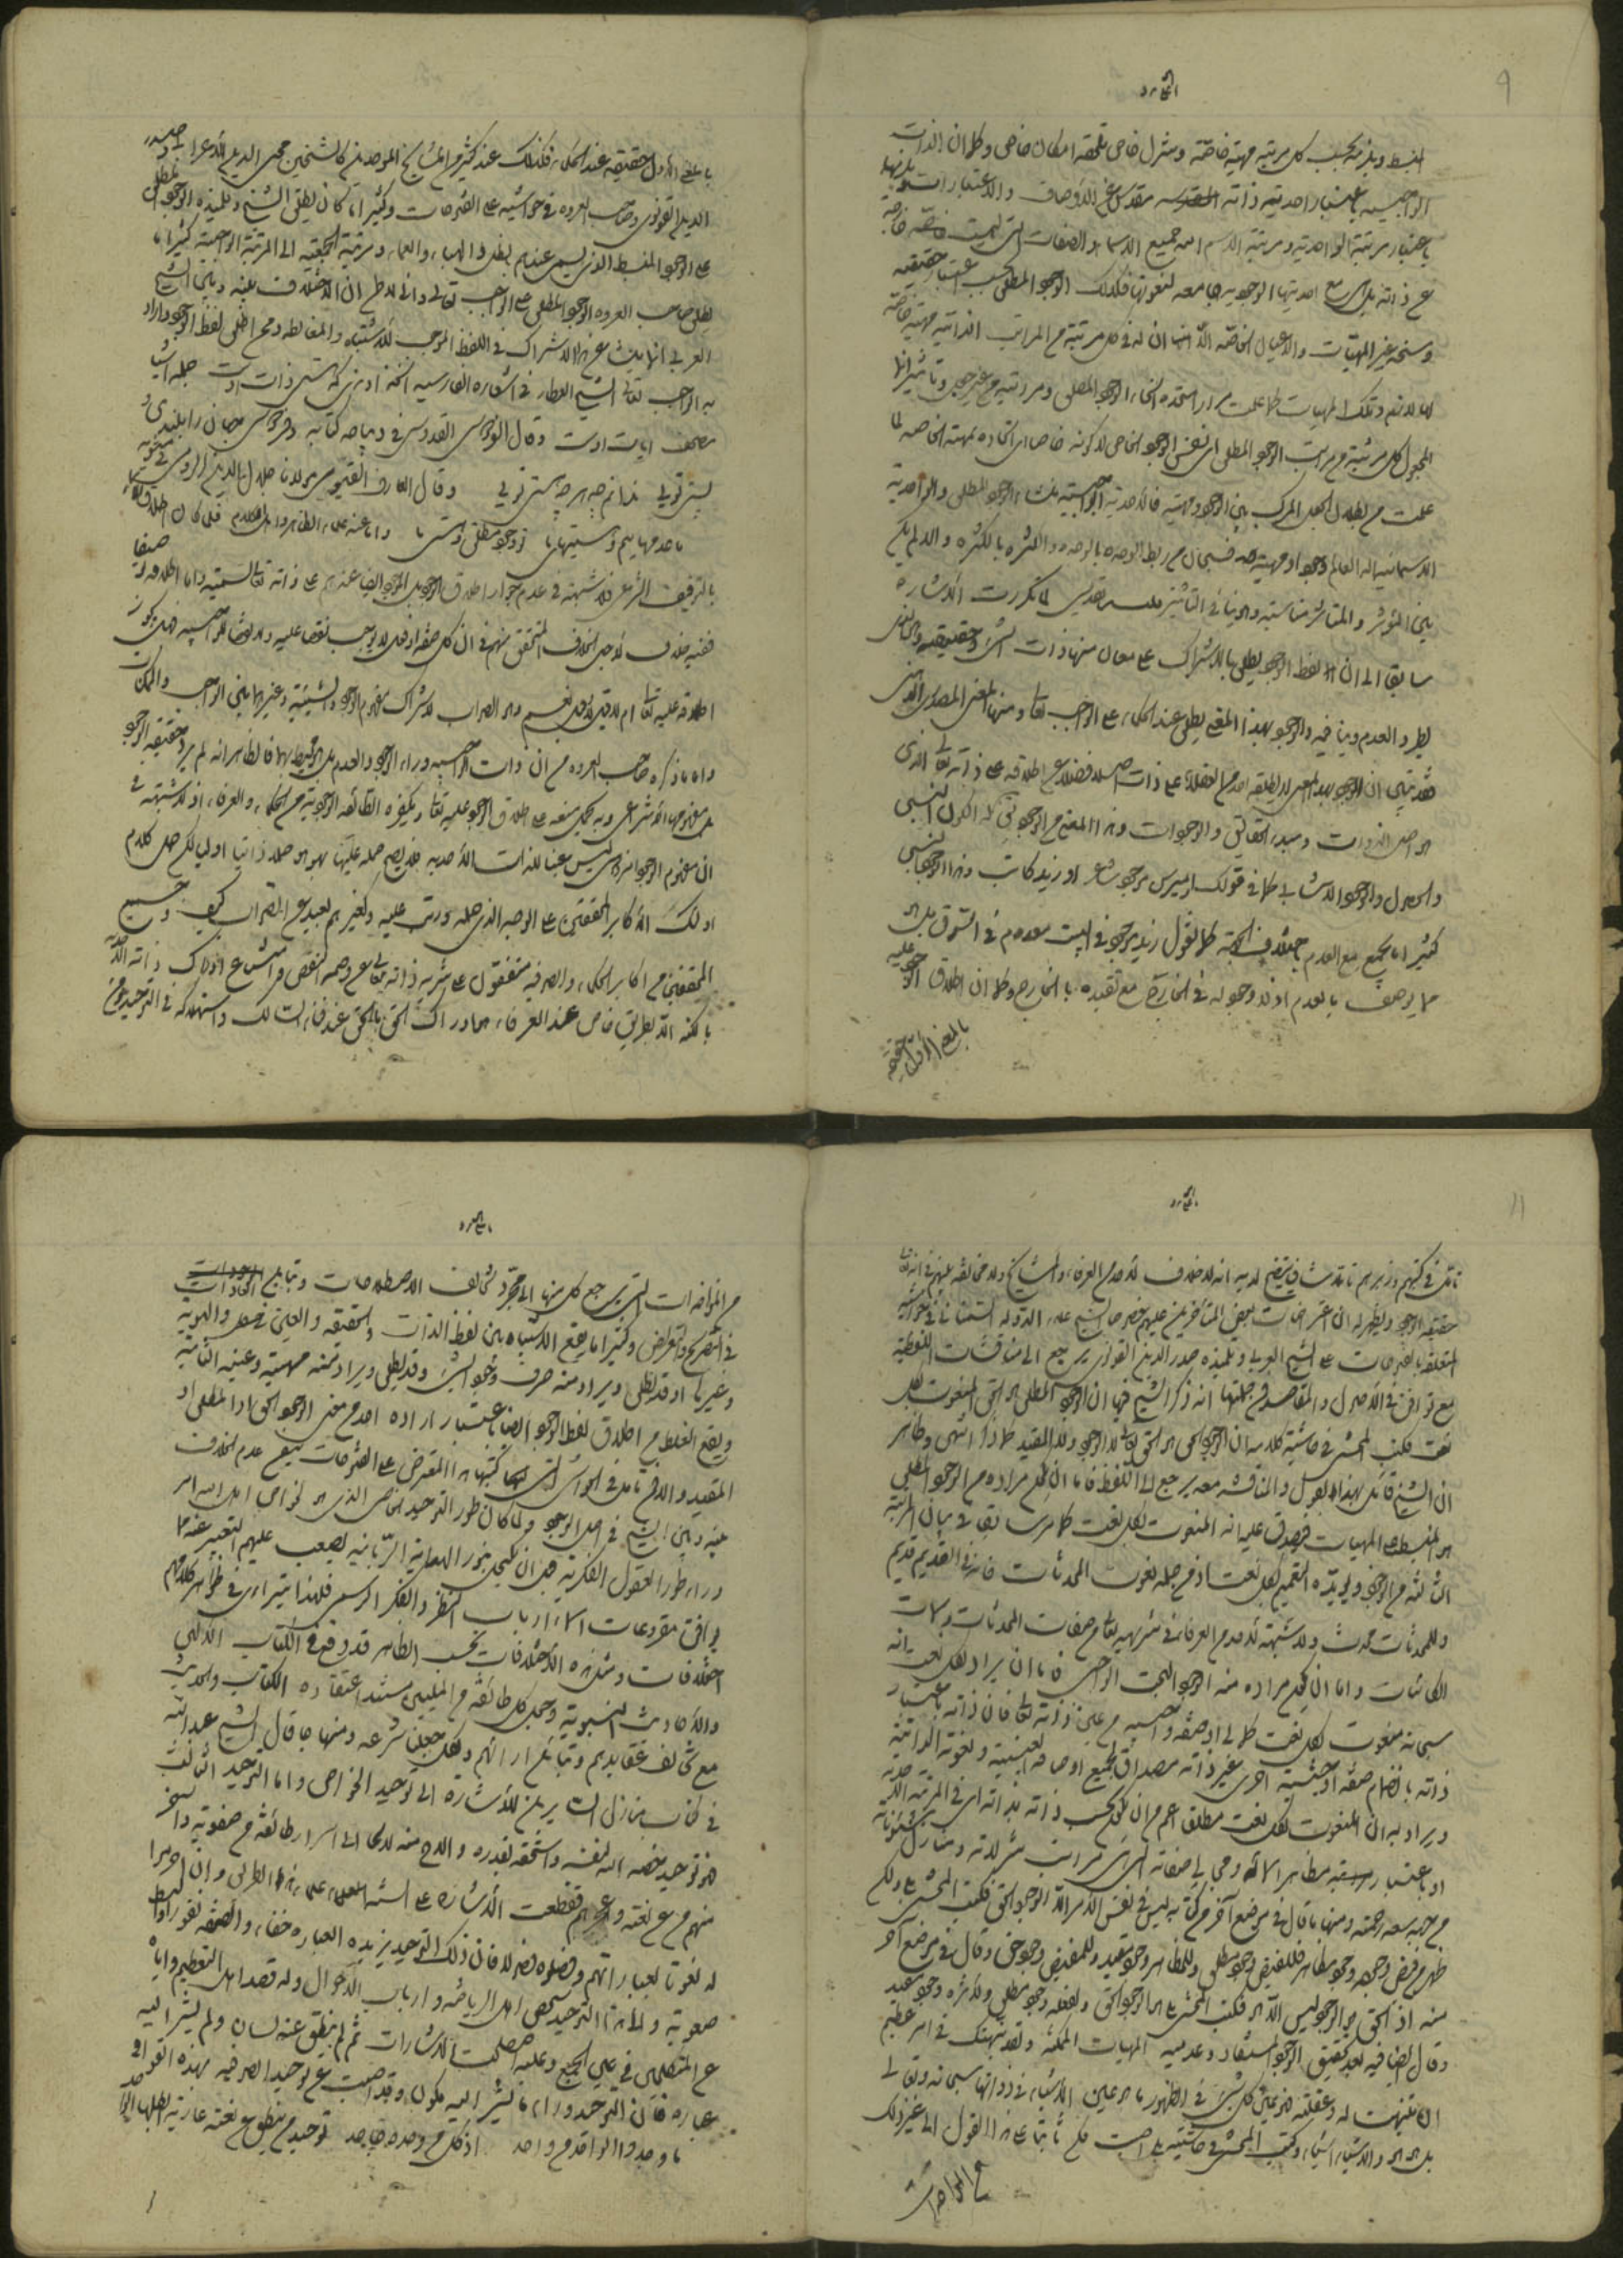 المنبسط ويلزمه بحسب كل مرتبة مهية خاصة وتنزل خاص يلحقه امكان خاص وكما ان الذات
الواجبية باعتبار احدية ذاته مقدس عن الاوصاف والاعتبارات ويلزمها
باعتبار مرتبة الواحدية ومرتبة الاسم الله جميع الاسماء والصفات التي ليست خارجة
عن ذاته بل هي مع احديتها الوجودية جامعة لمعقوليتها فكذلك الوجود المطلق بحسب اعتبار حقيقته
وسنخه غير المهيات والاعيان الخاصة الا ان له في كل مرتبة من المراتب الذاتية مهية خاصة
لها لازم وتلك المهيات كما علمت مرارا متحدة بانحاء الوجود المطلق ومراتبه من غير جعل وتاثير انما
المجعول كل مرتبة من مراتب الوجود المطلق اي نفس الوجود الخاص لا كونه خاصا اي اتحاده بمهيته الخاصة لما
علمت من بطلان الجعل المركب بين الوجود ومهيته فالاحدية الواجبية منشاء الوجود المطلق والواحدية
الاسمائية اله العالم وجودا ومهية فسبحان من ربط الوحدة بالوحدة والكثرة بالكثرة والا لم يكن
بين المؤثر والمتاثر مناسبة وهو ينافي التاثير لما تكررت الاشارة
سابقا الى ان لفظ الوجود يطلق بالاشتراك على معان منها ذات الشئ وحقيقته وهو الذي
يطرد العدم وينافيه والوجود بهذا المعنى يطلق عند الحكماء على الواجب تعالى ومنها المعنى المصدري الذهني
فقد تبين ان الوجود بهذا المعنى لا يطلقه احد من العقلاء على ذات اصلا فضلا عن اطلاقه على ذاته تعالى الذي
هو اصل الذوات ومبدء الحقائق والوجودات وهذا المعنى من الوجود يق له الكون النسبي
والحصول والوجود الاثباتي كما في قولك اوميرس موجود شاعر او زيد كاتب وهذا الوجود النسبي
كثيرا ما يجتمع مع العدم باختلاف الجهة كما تقول زيد موجود في البيت معدوم في السوق بل هو
مما يوصف بالعدم اذ لا وجود له في الخارج مع تقيده بالخارج وكما ان اطلاق الوجود عليه
بالمعنى الاول حقيقة
بالمعنى الاول حقيقة عند الحكماء فكذلك عند كثير من المشايخ الموحدين كالشيخين محيي الدين الاعرابي وصدر
الدين القونوي وصاحب العروة في حواشيه على الفتوحات وكثيرا ما كان يطلق الشيخ وتلميذه الوجود المطلق
على الوجود المنبسط الذي يسمى عندهم بالظل والهباء والعماء ومرتبة الجمعية الى المرتبة الواجبة كثيرا ما
يطلق صاحب العروة الوجود المطلق على الواجب تعالى واني لاظن ان الاختلاف بينه وبين الشيخ
العربي انما ينشا عن هذا الاشتراك في اللفظ الموجب للاشتباه والمغالطة وممن اطلق لفظ الوجود واراد
به الواجب تعالى الشيخ العطار في اشعاره الفارسية آن خداوندی که هستی ذات اوست جمله اشیا
مصحف ایات اوست وقال الفردوسي القدوسي في ديباجة كتابه جهان را بلندی و
پستی توئی ندانم چه هرچه هستی توئی وقال العارف القيومي مولانا جلال الدين الرومي في مثنويه
ما عدمهائیم وهستیهای ما تو وجود مطلق وهستی ما واما عند علماء الظاهر واهل الكلام فلما كان اطلاق
بالتوقيف الشرعي فلا شبهة في عدم جواز اطلاق الوجود بل الموجود ايضا عندهم على ذاته تعالى تسمية واما اطلاقه توصيفا
ففيه خلاف لاجل الخلاف المتحقق بينهم في ان كل صفة او فعل لا يوجب نقصا عليه ولا نقضا للواجبية فهل يجوز
اطلاقه عليه تعالى ام لا قيل لا وقيل نعم وهو الصواب لاشتراك مفهوم الوجود والشيئية وغيرهما بين الواجب والممكنات
واما ما ذكره صاحب العروة من ان ذات الواجبية وراء الوجود والعدم بل هو محيط بهما فالظاهر انه لم يرد حقيقة الوجود
بل مفهومه الانتزاعي وبه يحمل منعه عن اطلاق الوجود عليه تعالى وتكفيره الطائفة الوجودية من الحكماء والعرفاء اذ لا شبهة في
ان مفهوم الوجود امر ليس عينا للذات الاحدية فلا يصح حمله عليها بهو هو حملا ذاتيا اوليا لكن حمل كلام
اولئك الاكابر المحققين على الوجه الذي حمله ورتب عليه تكفيرهم بعيد عن الصواب كيف وجميع
المحققين من اكابر الحكماء والصوفية متفقون على تنزيه ذاته تعالى عن وصمة النقص وامتناع ادراك ذاته الاحدية
بالكنه الا بطريق خاص عند العرفاء هو ادراك الحق بالحق عند فناء السالك واستهلاكه في التوحيد ومن
تامل في كتبهم وزبرهم تاملا شافيا يتضح لديه انه لا خلاف لاحد من العرفاء والمشايخ ولا مخالفة بينهم في انه تعالى
حقيقة الوجود ويظهر له ان اعتراضات بعض المتاخرين عليهم خصوصا الشيخ علاء الدولة السمناني في حواشيه
المتعلقة بالفتوحات على الشيخ العربي وتلميذه صدر الدين القونوي يرجع الى مناقشات لفظية
مع توافق في الاصول والمقاصد فمن جملتها انه ذكر الشيخ فيها ان الوجود المطلق هو الحق المنعوت بكل
نعت فكتب المحشي في حاشية كلامه ان الوجود الحق هو الحق تعالى لا الوجود ولا المقيد كما ذكر انتهى وظاهر
ان الشيخ قائل بهذا القول والمناقشة معه يرجع الى اللفظ فاما ان يكون مراده من الوجود المطلق
هو المنبسط على المهيات فيصدق عليه انه المنعوت بكل نعت كما مر سابقا في بيان المرتبة
الثالثة من الوجود ويؤيده التعميم بكل نعت اذ من جملة نعوت المحدثات فانه في القديم قديم
وللمحدثات محدث ولا شبهة لاحد من العرفاء في تنزيهه تعالى من صفات المحدثات وسمات
الكائنات واما ان يكون مراده منه الوجود البحت الواجبي فاما ان يراد بكل نعت انه
سبحانه منعوت بكل نعت كمالي او صفة واجبية من عين ذاته تعالى فان ذاته باعتبار
ذاته بانضمام صفة او حيثية اخرى غير ذاته مصداق لجميع اوصافه العينية ونعوته الذاتية
ويراد به ان المنعوت بكل نعت مطلقا اعم من ان يكون بحسب ذاته بذاته اي في المرتبة الاحدية
او باعتبار مظاهر اسمائه ومجالي صفاته التي هي مراتب تنزلاته ومنازل شئوناته
من جهة سعة رحمته ومنها ما قال في موضع آخر من كتابه ليس في نفس الامر الا الوجود الحق فكتب المحشي بلى ولكن
ظهر من فيض وجود وجود مظاهر فللفيض وجود مطلق وللمظاهر وجود مقيد وللمفيض وجود حق وقال في موضع آخر
منه اذ الحق هو الوجود ليس الا هو فكتب المحشي بلى هو الوجود الحق ولفعله وجود مطلق ولاثره وجود مقيد
وقال ايضا فيه بعد تحقيق الوجود المستفاد وعدمية المهيات الممكنة ولقد نبهتك في امر عظيم
ان تنبهت له وعقلته فهو عين كل شئ في الظهور ما هو عين الاشياء في ذواتها سبحانه وتعالى
بل هو هو والاشياء اشياء وكتب المحشي في حاشيته بلى اصبت فكن ثابتا على هذا القول الى غير ذلك
من المؤاخذات
من المؤاخذات التي يرجع كل منها الى مجرد تخالف الاصطلاحات وتباين العادات
في التصريح والتعريض وكثيرا ما يقع الاشتباه من لفظ الذات والحقيقة والعين والهوية
وغيرها اذ قد يطلق ويراد منه صرف وجود الشئ وقد يطلق ويراد منه مهيته وعينه الثابتة
ويقع الغلط من اطلاق لفظ الوجود ايضا باعتبار ارادة احد من معنى الوجود الحق او المطلق او
المقيد والا فمن تامل في الحواشي التي كتبها هذا المعترض على الفتوحات تيقن عدم الخلاف
بينه وبين الشيخ في اصل الوجود ولما كان طور التوحيد الخاصي الذي هو لخواص اهل الله امر
وراء طور العقول الفكرية قبل ان يكتحل بنور الهداية الربانية يصعب عليهم التعبير عنه بما
يوافق مقروعات اسماع ارباب النظر والفكر الرسمي فلهذا يتراءى في ظواهر كلامهم
اختلافات ومثل هذه الاختلافات بحسب الظاهر قد وقع في الكتاب الالهي
والاحاديث النبوية وجعل كل طائفة من المليين مستند اعتقاده الكتاب والحديث
مع تخالف عقايدهم وتباين ارائهم ولكل جعلنا شرعة ومنهاجا قال الشيخ عبد الله
في كتاب منازل السائرين للاشارة الى توحيد الخواص واما التوحيد الثالث
فهو توحيد اختصه الله لنفسه واستحقه بقدره والاح منه لائحا الى اسرار طائفة من صفوته واخرسهم
عن نعته واعجزهم فقطعت الاشارة على السنة علماء هذا الطريق وان زخرفوا
له نعوتا بعباراتهم وفصلوه فصولا فان ذلك التوحيد يزيده العبارة خفاء والصفة نفورا والبسط
صعوبة والى هذا التوحيد شخص اهل الرياضة وارباب الاحوال وله قصد اهل التعظيم واياه
عنى المتكلمون في عين الجمع وعليه اصطلمت الاشارات ثم لم ينطق عنه لسان ولم يشر اليه
عبارة فان التوحيد وراء ما يشير اليه مكون وقد اجبت عن توحيد الصوفية بهذه القوافي
ما وحد الواحد من واحد اذ كل من وحده جاحد توحيد من ينطق عن نعته عارية ابطلها الواحد